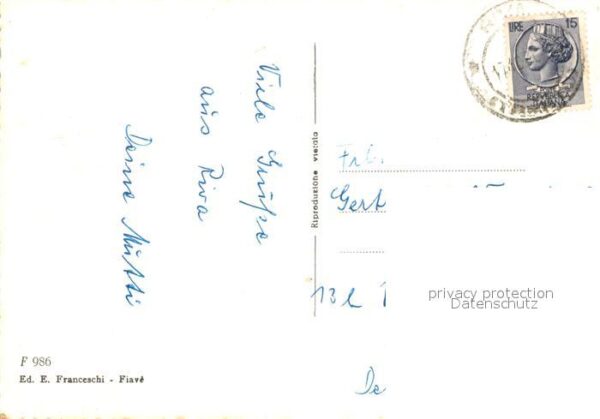 LIRE 15
Viele Grüße
aus Riva
Deine Mutti
Riproduzione vietata
Frl.
Gert
13 b
De
privacy protection
Datenschutz
F 986
Ed. E. Franceschi - Fiavè